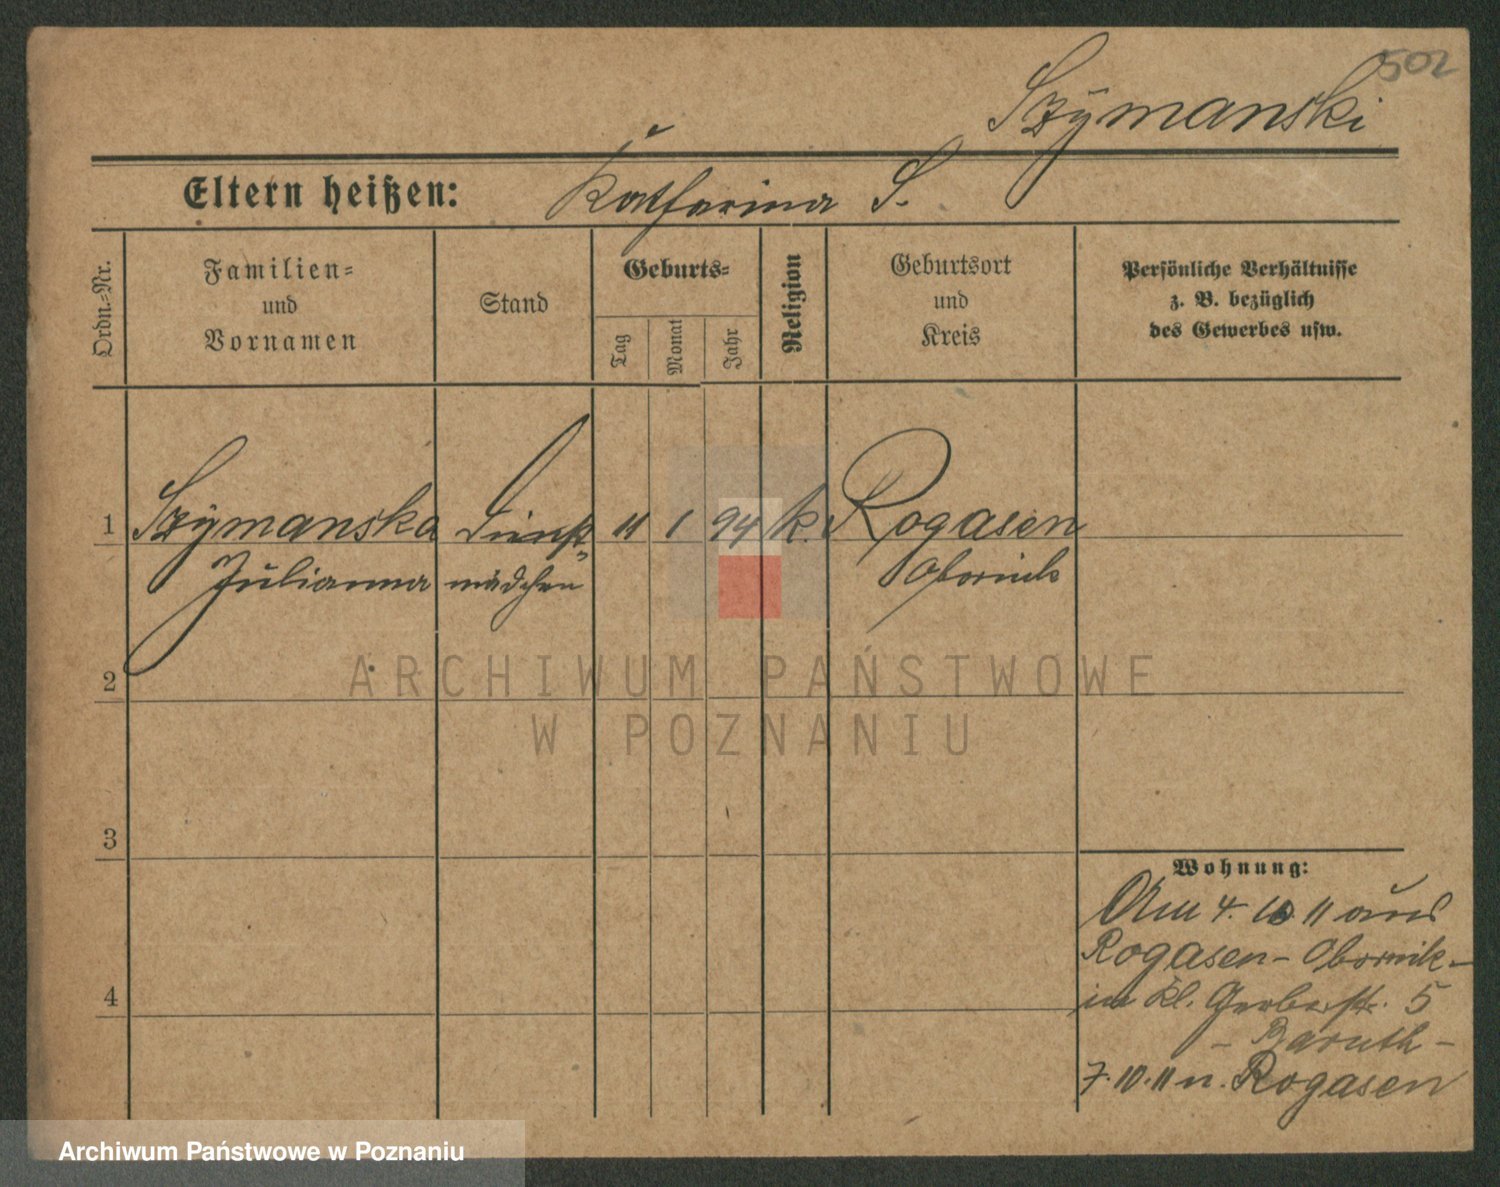 502
Szymanski
Eltern heißen: Katharina S.
Ordn.-Nr.
Familien-
und
Vornamen
Stand
Geburts-
Tag
Monat
Jahr
Religion
Geburtsort
und
Kreis
Persönliche Verhältnisse
z. B. bezüglich
des Gewerbes usw.
1 Szymanska Dienst- 11 1 94 k. Rogasen
Julianna mädchen Obornik
ARCHIWUM PAŃSTWOWE
2
W POZNANIU
3
Wohnung:
Am 4. 10. 11 aus
Rogasen - Obornik -
4
in Kl. Gerberstr. 5
- Baruth -
7. 10. 11 n. Rogasen
Archiwum Państwowe w Poznaniu